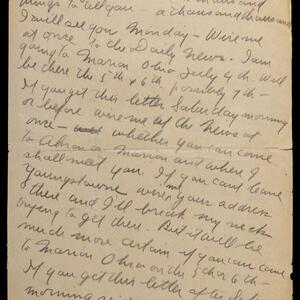 things to tell you – a thousand thousand
I will call you Monday – Wire me
at once to the Daily News. I am
going to Marion Ohio July 4th. Will
be there the 5th & 6th possibly 7th –
If you get this letter Saturday morning
or before wire me at the News at
once – whether you can come
to Akron or Marion and where I
shall meet you. If you can't leave
Youngstown wire your address
there and I'll break my neck
trying to get there. But it will be
much more certain if you can come
to Marion Ohio on the 5th or 6th –
If you get this letter after
morning